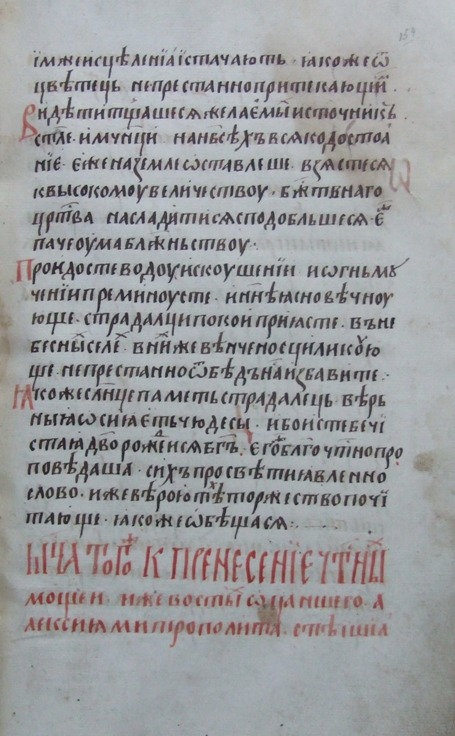 імжеисцѣленїа істачають · іакожеѿ
цвѣтець непрестанно притекающїи
Видѣтитщашеся желаемыи источникъ
стїе · имч҃нци · на нб҃сѣхъ вся кодостоа
нїе · еже на земле ѡставлеше · взястеся
к высокомоу величествоу · бж҃твнаго
црт҃ва насладитися сподобльшеся · є҆
паче оума блж҃ньствоу ·
Проидосте водоу искоушенїи и огньмꙋ
ченїи преминоусте · и нн҃ѣ ясно вѣчноу
юще · страдалци покои прїясте · въ не
бесны селе вниже вѣнченосци ликꙋю
ще · непрестанно ѿ бѣдъ на избавите ·
Іакоже слнц҃е паметь страдалець вѣрь
ныя ѡсиаеть чюдесы · и бо истебе чі
стая дв҃о рожеися бг҃ъ · єго бл҃гочт҃но про
повѣдаша · сихъ просвѣти явленно
слово · иже вѣрою тѣ торжество почі
тающе · іакоже ѡбѣщася ·
мч҃а того к пренесенїе чт҃ны
мощеи · иже во ст҃ы ѿца ншего · а
леѯия митрополита · ст҃ѣиша